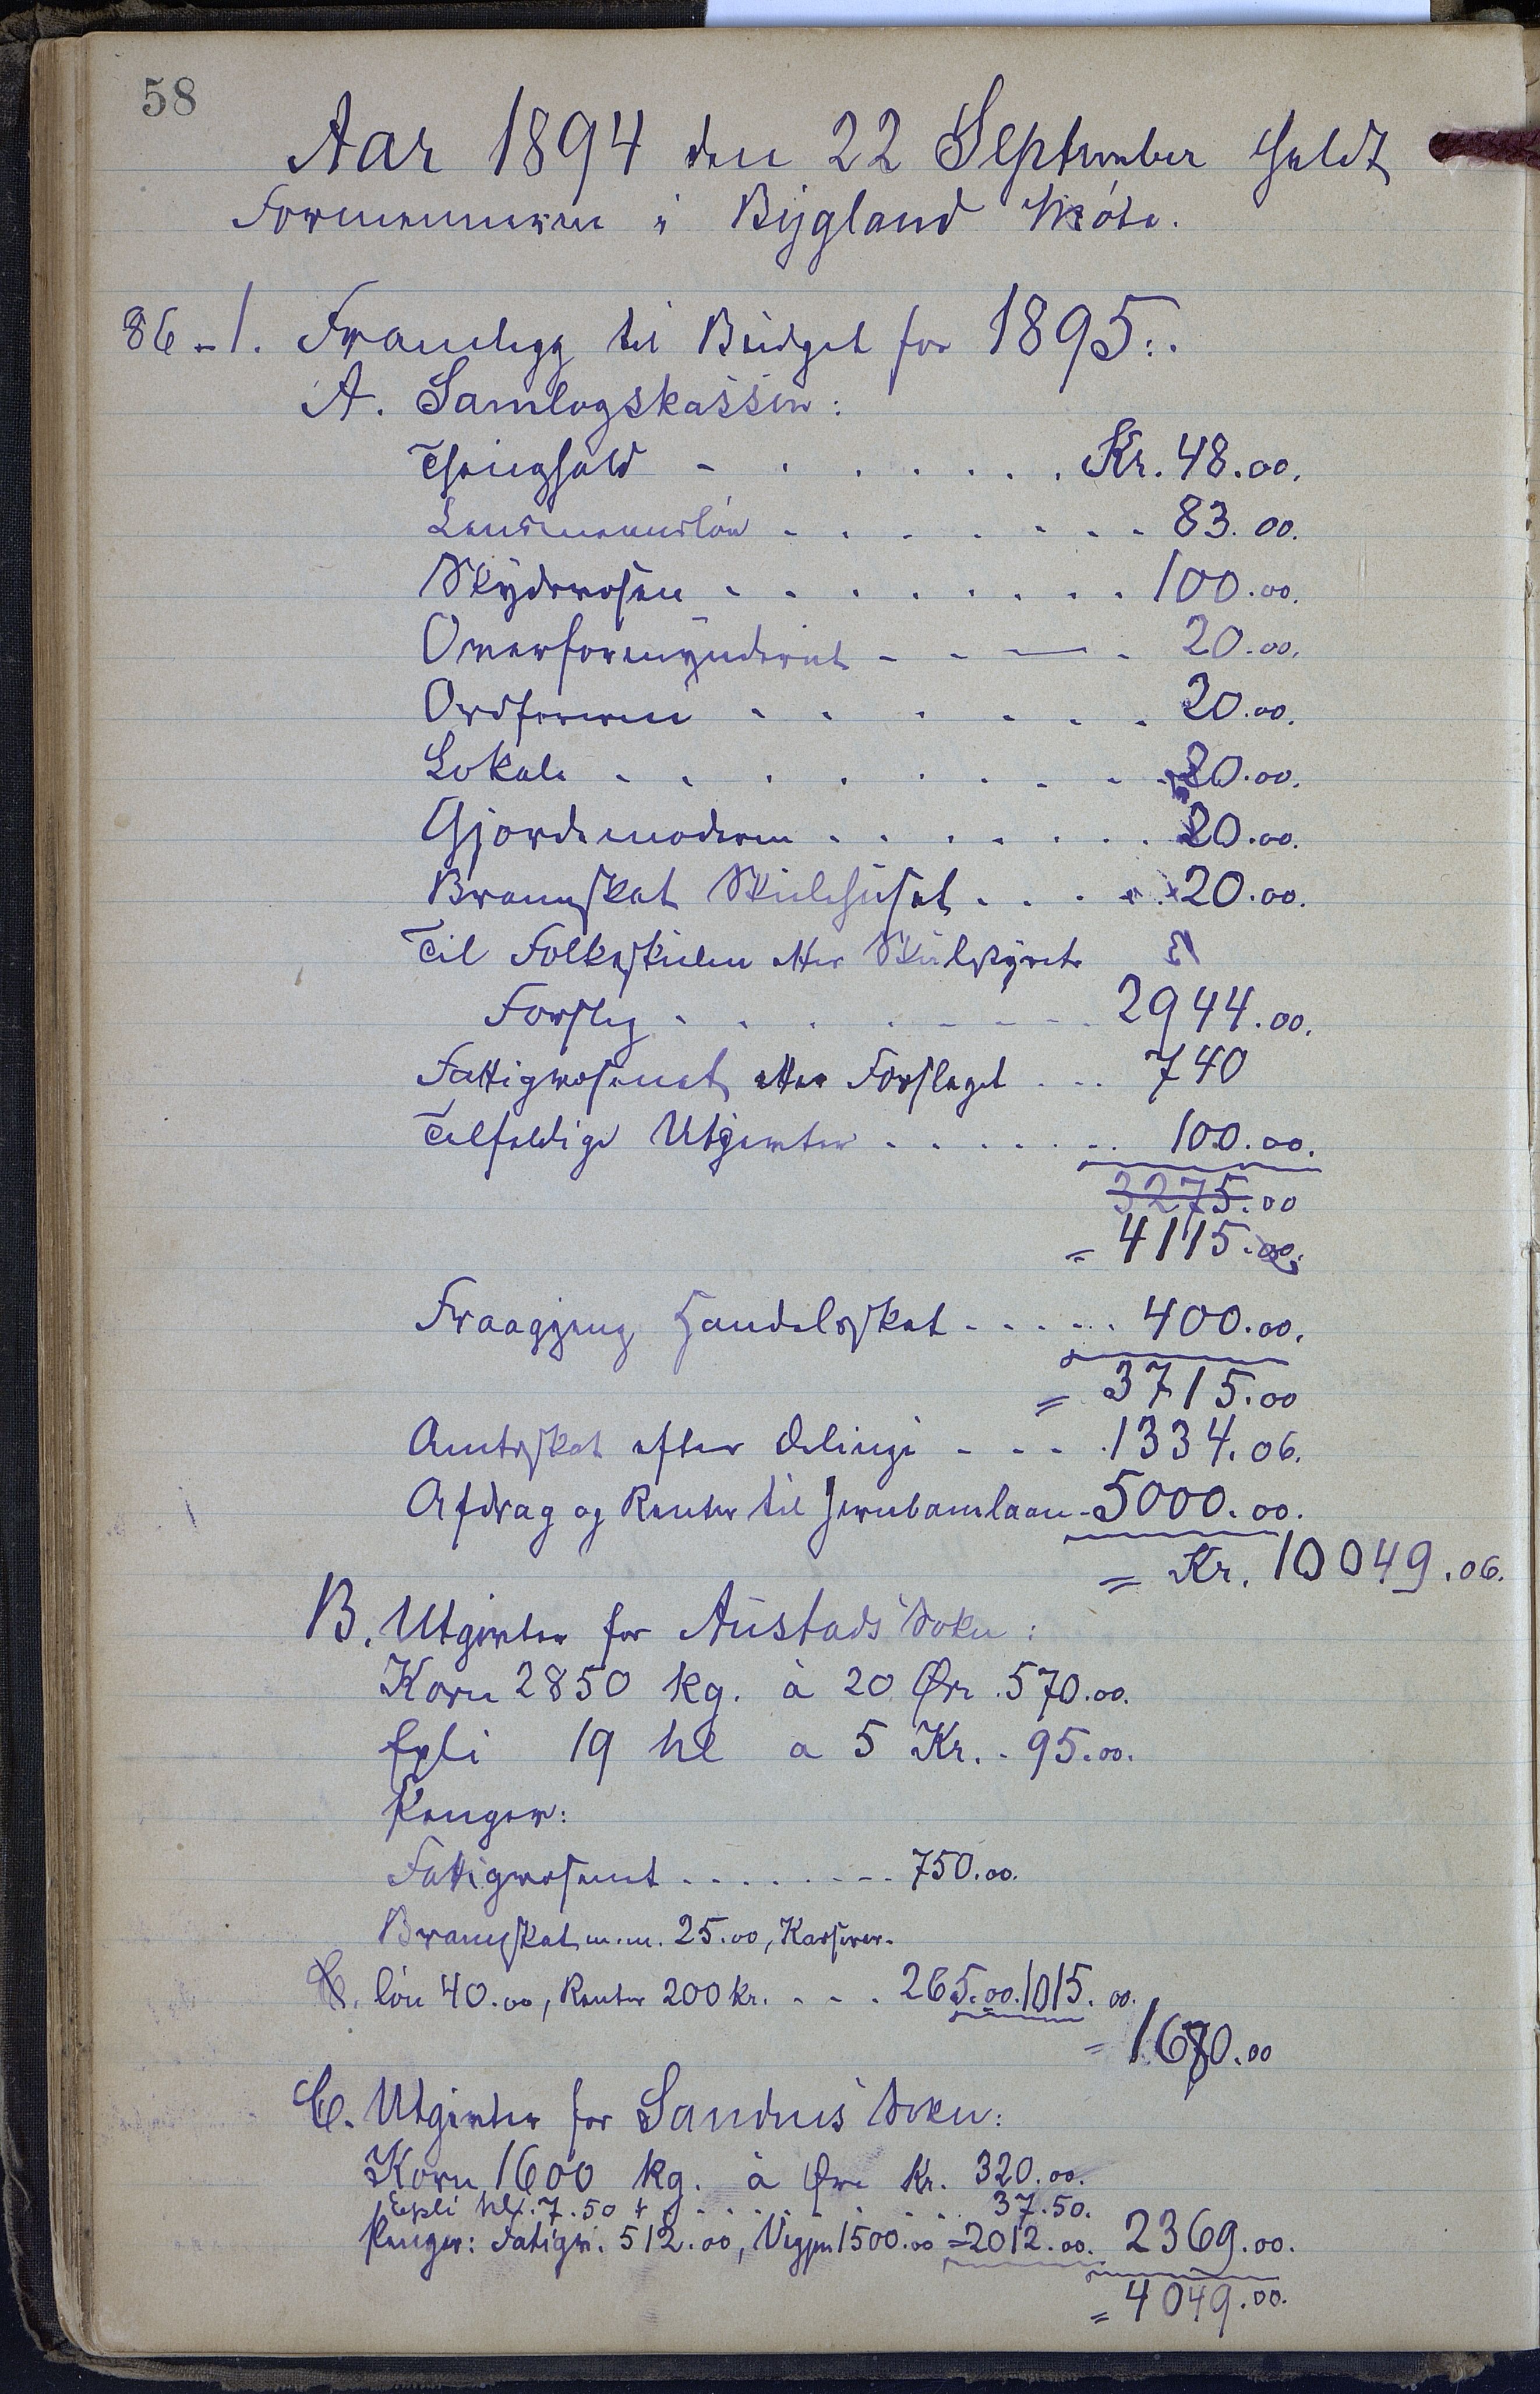 58
Aar 1894 den 22 September heldt
Formennerne i Bygland Móte.
86-1. Framlegg til Budget for 1895:.
A. Samlagskassen:
Thinghald - . . . . . . Kr. 48.00.
Lensmannslón . . . . . . . 83.00.
Skydsvæsen . . . . . . . . 100.00.
Overformynderiet - - — . 20.00.
Ordføraren . . . . . . . 20.00.
Lokale . . . . . . . . 20.00.
Gjordemoderen . . . . . . 20.00.
Brannskat Skulehuset . . . . 20.00.
Til Folkeskulen etter Skulestyrets
Forslag . . . . . . . 2944.00.
Fattigvæsenet etter Forslaget . . . 740
Tilfeldige Utgjevter . . . . . . 100.00.
3275.00
= 4115.00.
Fraagjeng Handelsskat . . . . . 400.00.
= 3715.00
Amtsskat efter Delingi - - - . 1334.06.
Afdrag og Renter til Jernbanelaan - 5000.00.
= Kr. 10049.06.
B. Utgjevter for Austads Sokn:
Korn 2850 kg. à 20 Øre . 570.00.
Epli 19 hl a 5 Kr. . 95.00.
Pengar:
Fattigvæsenet . . . . . . . . 750.00.
Brannskat m.m. 25.00, Kasserar-
C. lón 40.00, Renter 200 kr. . . . 265.00. 1015.00.
= 1680.00
C. Utgjevter for Sandnes Sokn:
Korn 1600 kg. à Øre Kr. 320.00.
Epli hl. 7.50 . . . . . . . . 37.50.
Pengar: Fatigv. 512.00, Vegen 1500.00 = 2012.00. 2369.00.
= 4049.00.